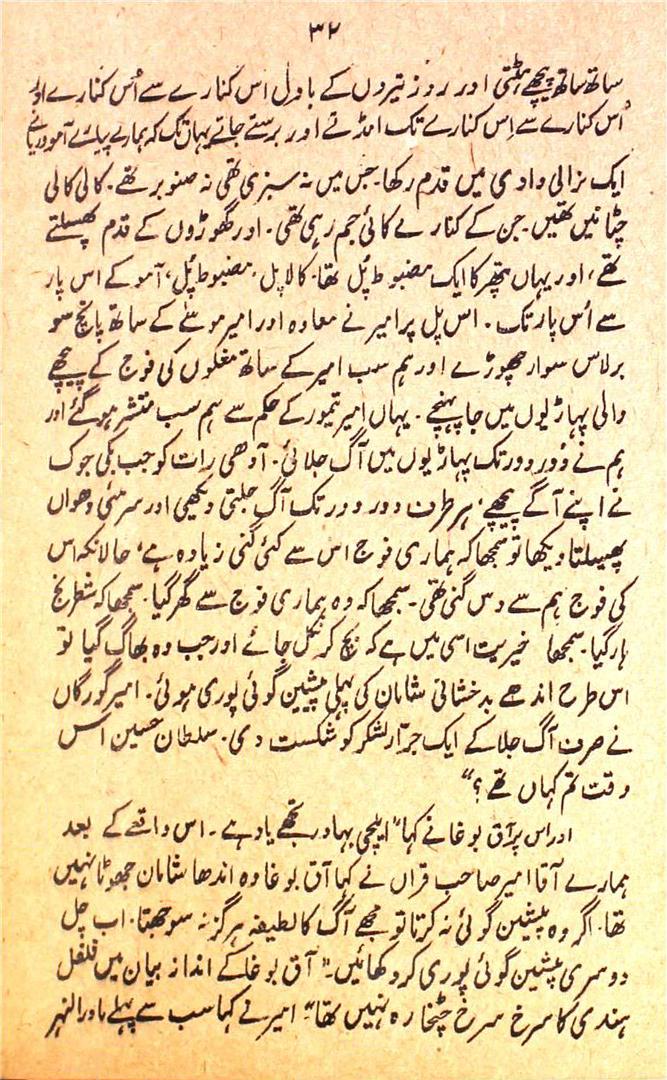 ۳۲
ساتھ ساتھ پیچھے ہٹتی اور روز تیروں کے بادل اس کنارے سے اُس کنارے اور
اُس کنارے سے اِس کنارے تک امڈتے اور برستے جاتے یہاں تک کہ ہمارے پیارے آمو دریا نے
ایک نرالی وادی میں قدم رکھا۔ جس میں نہ سبزی تھی نہ صنوبر تھے۔ کالی کالی
چٹانیں تھیں۔ جن کے کنارے کائی جم رہی تھی۔ اور گھوڑوں کے قدم پھسلتے
تھے، اور یہاں پتھر کا ایک مضبوط پُل تھا۔ کالا پل، مضبوط پُل، آمو کے اس پار
سے اُس پار تک۔ اس پل پر امیر نے معاوہ اور امیر موسےٰ کے ساتھ پانچ سو
برلاس سوار چھوڑے اور ہم سب امیر کے ساتھ مغلوں کی فوج کے پیچھے
والی پہاڑیوں میں جا پہنچے۔ یہاں امیر تیمور کے حکم سے ہم سب منتشر ہو گئے اور
ہم نے دُور دُور تک پہاڑیوں میں آگ جلائی۔ آدھی رات کو جب بکی جوک
نے اپنے آگے پیچھے، ہر طرف دور دور تک آگ جلتی دیکھی اور سرمئی دھواں
پھیلتا دیکھا تو سمجھا کہ ہماری فوج اس سے کئی گنی زیادہ ہے، حالانکہ اس
کی فوج ہم سے دس گنی تھی۔ سمجھا کہ وہ ہماری فوج سے گھر گیا۔ سمجھا کہ شطرنج
ہار گیا۔ سمجھا خیریت اسی میں ہے کہ بچ کر نکل جائے اور جب وہ بھاگ گیا تو
اس طرح اندھے بدخشانی شامان کی پہلی پیشین گوئی پوری ہوئی۔ امیر گورگاں
نے صرف آگ جلا کے ایک جرّار لشکر کو شکست دی۔ سلطان حسین اس
وقت تم کہاں تھے؟"
اور اس پر آق بوغا نے کہا "ایلچی بہادر تجھے یاد ہے۔ اس واقعے کے بعد
ہمارے آقا امیر صاحب قراں نے کہا آق بوغا وہ اندھا شامان جھوٹا نہیں
تھا۔ اگر وہ پیشین گوئی نہ کرتا تو مجھے آگ کا لطیفہ ہرگز نہ سوجھتا۔ اب چل
دوسری پیشین گوئی پوری کر دکھائیں۔" آق بوغا کے انداز بیان میں فلفل
ہندی کا سرخ سرخ چٹخارہ نہیں تھا" امیر نے کہا سب سے پہلے ماورالنہر